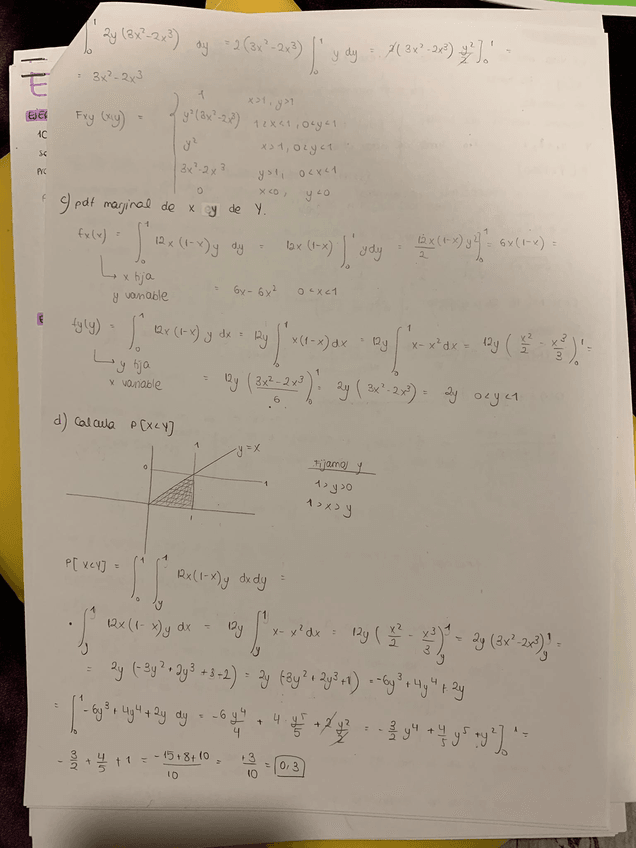 ∫₀¹ 2y (3x²-2x³) dy = 2 (3x²-2x³) ∫₀¹ y dy = 2 (3x²-2x³) y²/2 ]₀¹ =
= 3x²-2x³
Fxy (x,y) =
1 x>1, y>1
y²(3x²-2x³) 1<x<1, 0<y<1
y² x>1, 0<y<1
3x²-2x³ y>1, 0<x<1
0 x<0, y<0
c) pdf marjinal de x y de Y.
fx(x) = ∫₀¹ 12x (1-x) y dy = 12x (1-x) ∫₀¹ y dy = 12x(1-x) y²/2 ]₀¹ = 6x(1-x) =
x fija
y variable = 6x - 6x² 0<x<1
fy(y) = ∫₀¹ 12x (1-x) y dx = 12y ∫₀¹ x(1-x) dx = 12y ∫₀¹ x-x² dx = 12y ( x²/2 - x³/3 )₀¹ =
y fija
x variable = 12y ( 3x²-2x³ / 6 )₀¹ = 2y ( 3x²-2x³) = 2y 0<y<1
d) Calcula P[X<Y]
1 y=x
0
1
1
Fijamos y
1>y>0
1>x>y
P[X<Y] = ∫₀¹ ∫y¹ 12x(1-x)y dxdy =
• ∫y¹ 12x(1-x)y dx = 12y ∫y¹ x-x² dx = 12y ( x²/2 - x³/3 )y¹ = 2y (3x²-2x³)y¹ =
= 2y (-3y²+2y³+3-2) = 2y (-3y²+2y³+1) = -6y³+4y⁴+2y
= ∫₀¹ -6y³+4y⁴+2y dy = -6 y⁴/4 + 4 y⁵/5 + 2 y²/2 = -3/2 y⁴ + 4/5 y⁵ + y² ]₀¹ =
- 3/2 + 4/5 + 1 = -15+8+10 / 10 = +3/10 = 0,3